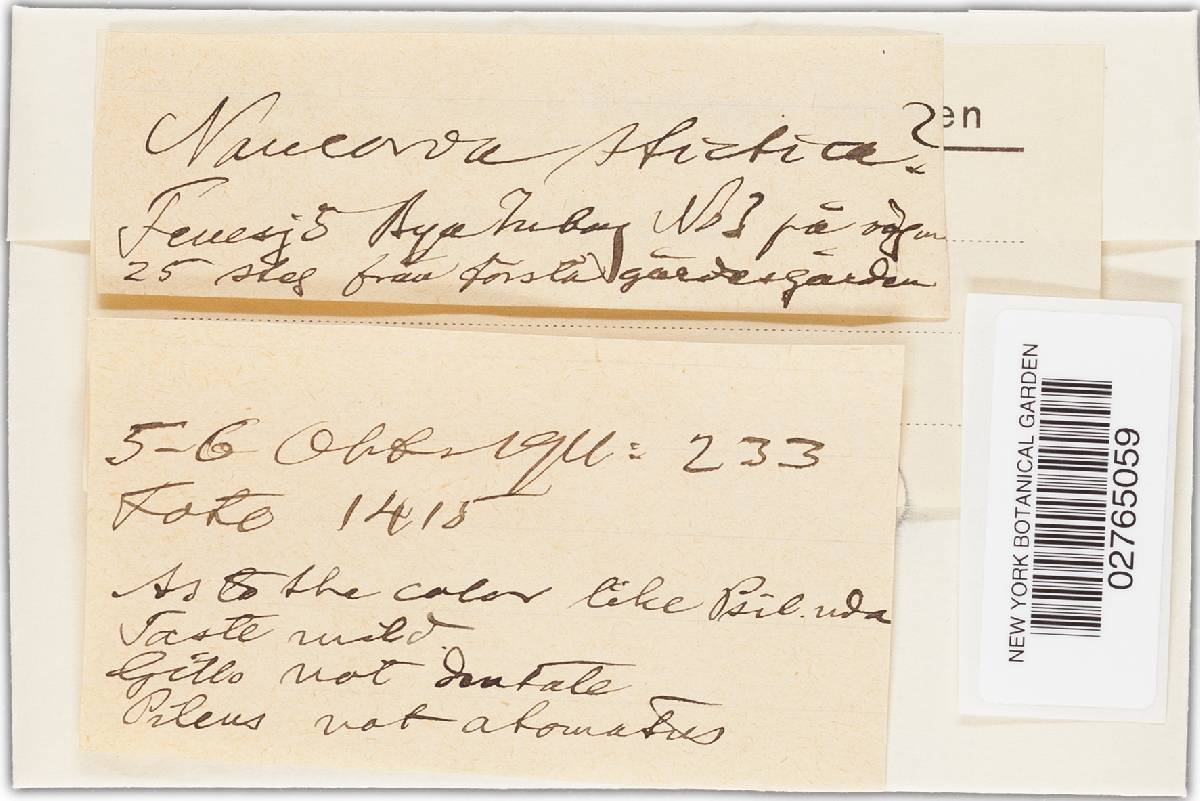 Naucoria stictica?
Femsjö Byatubag No 3 på vägen
25 steg från första gärdesgården
en
5-6 Okt. 1911: 233
Foto 1415
As to the color like Psil. uda
Taste mild.
Gills not dentate
Pileus not atomatus
NEW YORK BOTANICAL GARDEN
02765059